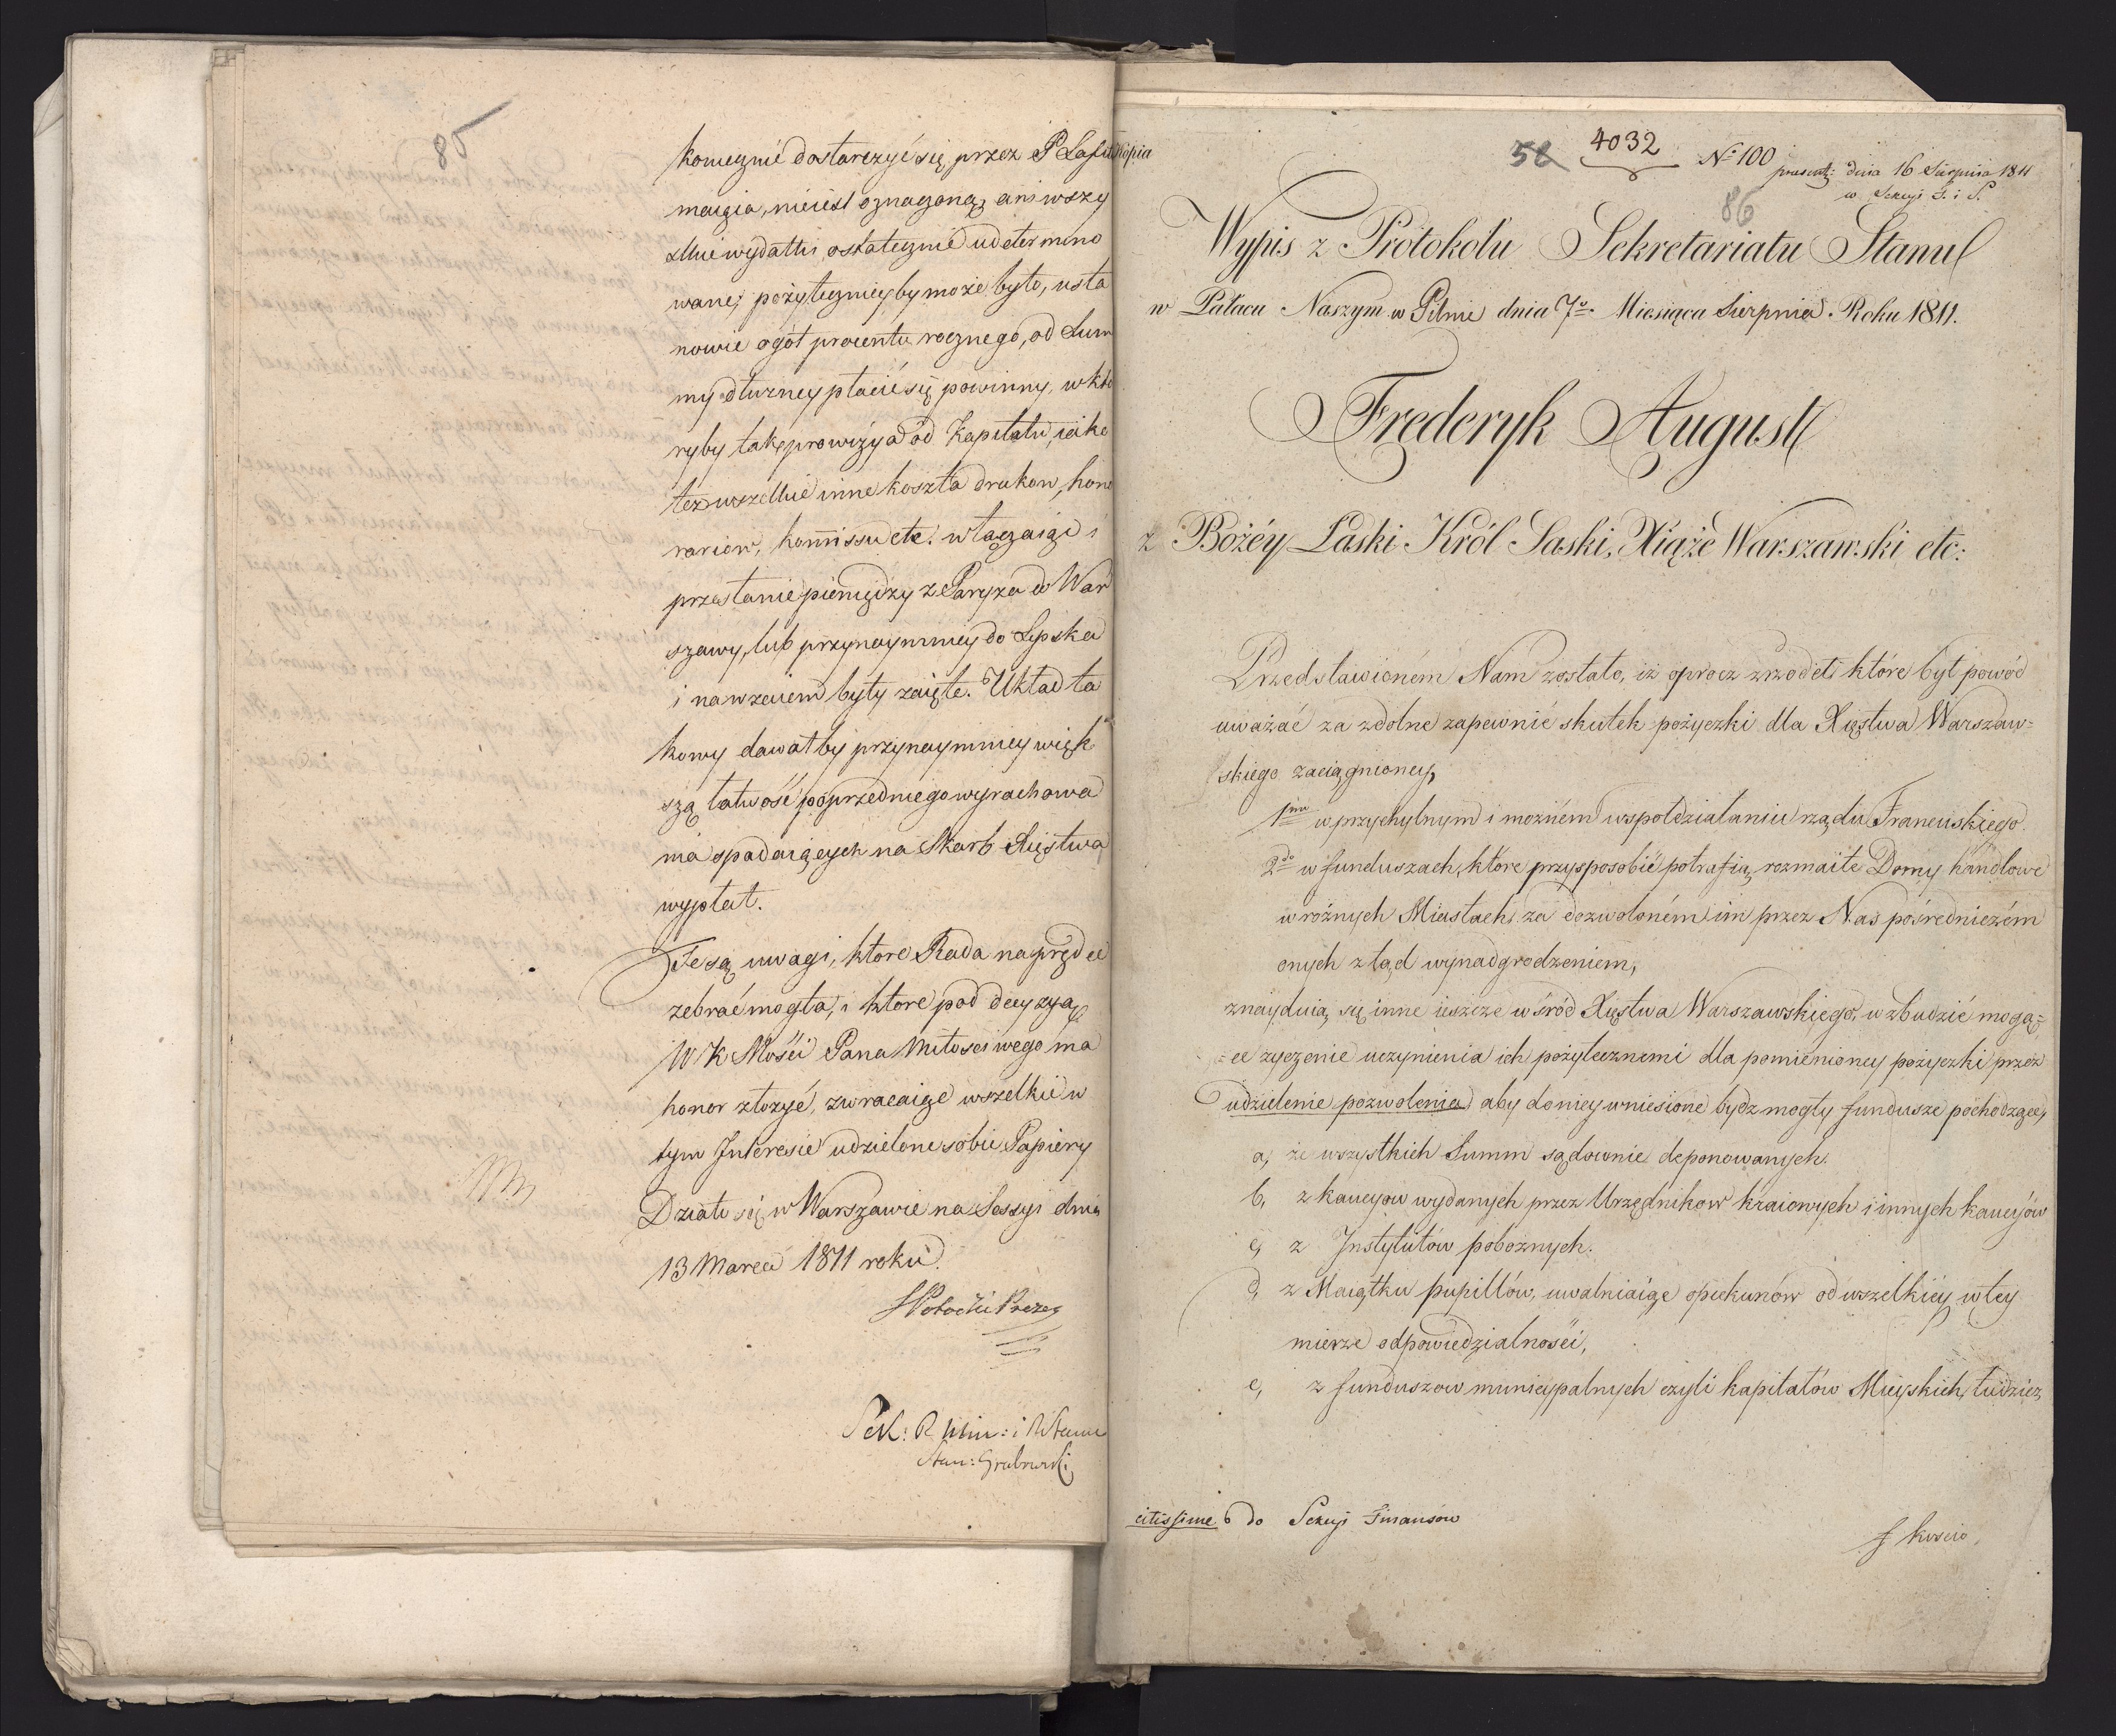 85
koniecznie dostarczyć się przez P Lafit
maiąca, nieiest oznaczoną, ani wszy
stkie wydatki ostatecznie udetermino
wane; pożyteczniey by może było, usta
nowić ogół procentu rocznego, od Sum
my dłużney płacić się powinny, w któ
ryby tak prowizya od Kapitału, iako
też wszelkie inne koszta druków, hono
rariów, kommissu etc. włączaiąc i
przesłanie pieniędzy z Paryża do War
szawy, lub przynaymniey do Lipska
i nawzaiem były zaięte. Układ ta
kowy dawałby przynaymniey więk
szą łatwość poprzedniego wyrachowa
nia spadaiących na Skarb Xięstwa
wypłat.
Te są uwagi, które Rada naprędce
zebrać mogła, i które pod decyzyą
W K Mości Pana Miłościwego ma
honor złożyć, zwracaiąc wszelkie w
tym Interesie udzielone sobie Papiery
Działo się w Warszawie na Sessyi dnia
13 Marca 1811 roku.
S Potocki Prezes
Sek: R Min: i R Stanu
Stan: Grabowski
Kopia
58 4032 No 100 praesent: dnia 16 Sierpnia 1811
w Sekcyi S. i S.
86
Wypis z Protokołu Sekretariatu Stanu
w Pałacu Naszym w Pilnie dnia 7o Miesiąca Sierpnia Roku 1811.
Fryderyk August
z Bożéy Łaski Król Saski, Xiąże Warszawski etc:
Przedstawionem Nam zostało, iż oprocz zrzodeł które był powód
uważać za zdolne zapewnić skutek pożyczki dla Xięstwa Warszaw=
skiego zaciągnioney,
1mo w przychylnym i możném wspołdziałaniu rządu Francuskiego.
2do w funduszach, które przysposobić potrafią rozmaite Domy handlowe
w rożnych Miastach za dozwoloném im przez Nas pośredniczém
onych ztąd wynadgrodzeniem,
znayduią się inne ieszcze wśród Xięstwa Warszawskiego, wzbudzić mogą=
=ce życzenie uczynienia ich pożytecznemi dla pomienioney pożyczki przez
udzielenie pozwolenia aby do niey wniesione bydz mogły fundusze pochodzące,
a, ze wszystkich Summ sądownie deponowanych.
b, z kaucyow wydanych przez Urzędnikow kraiowych i innych kaucyów
c, z Instytutów pobożnych.
d, z Maiątku pupillów, uwalniaiąc opiekunów od wszelkiey w tey
mierze odpowiedzialności,
e, z funduszow municypalnych czyli kapitałów Mieyskich, tudzież
citissime do Sekcyi Finansow